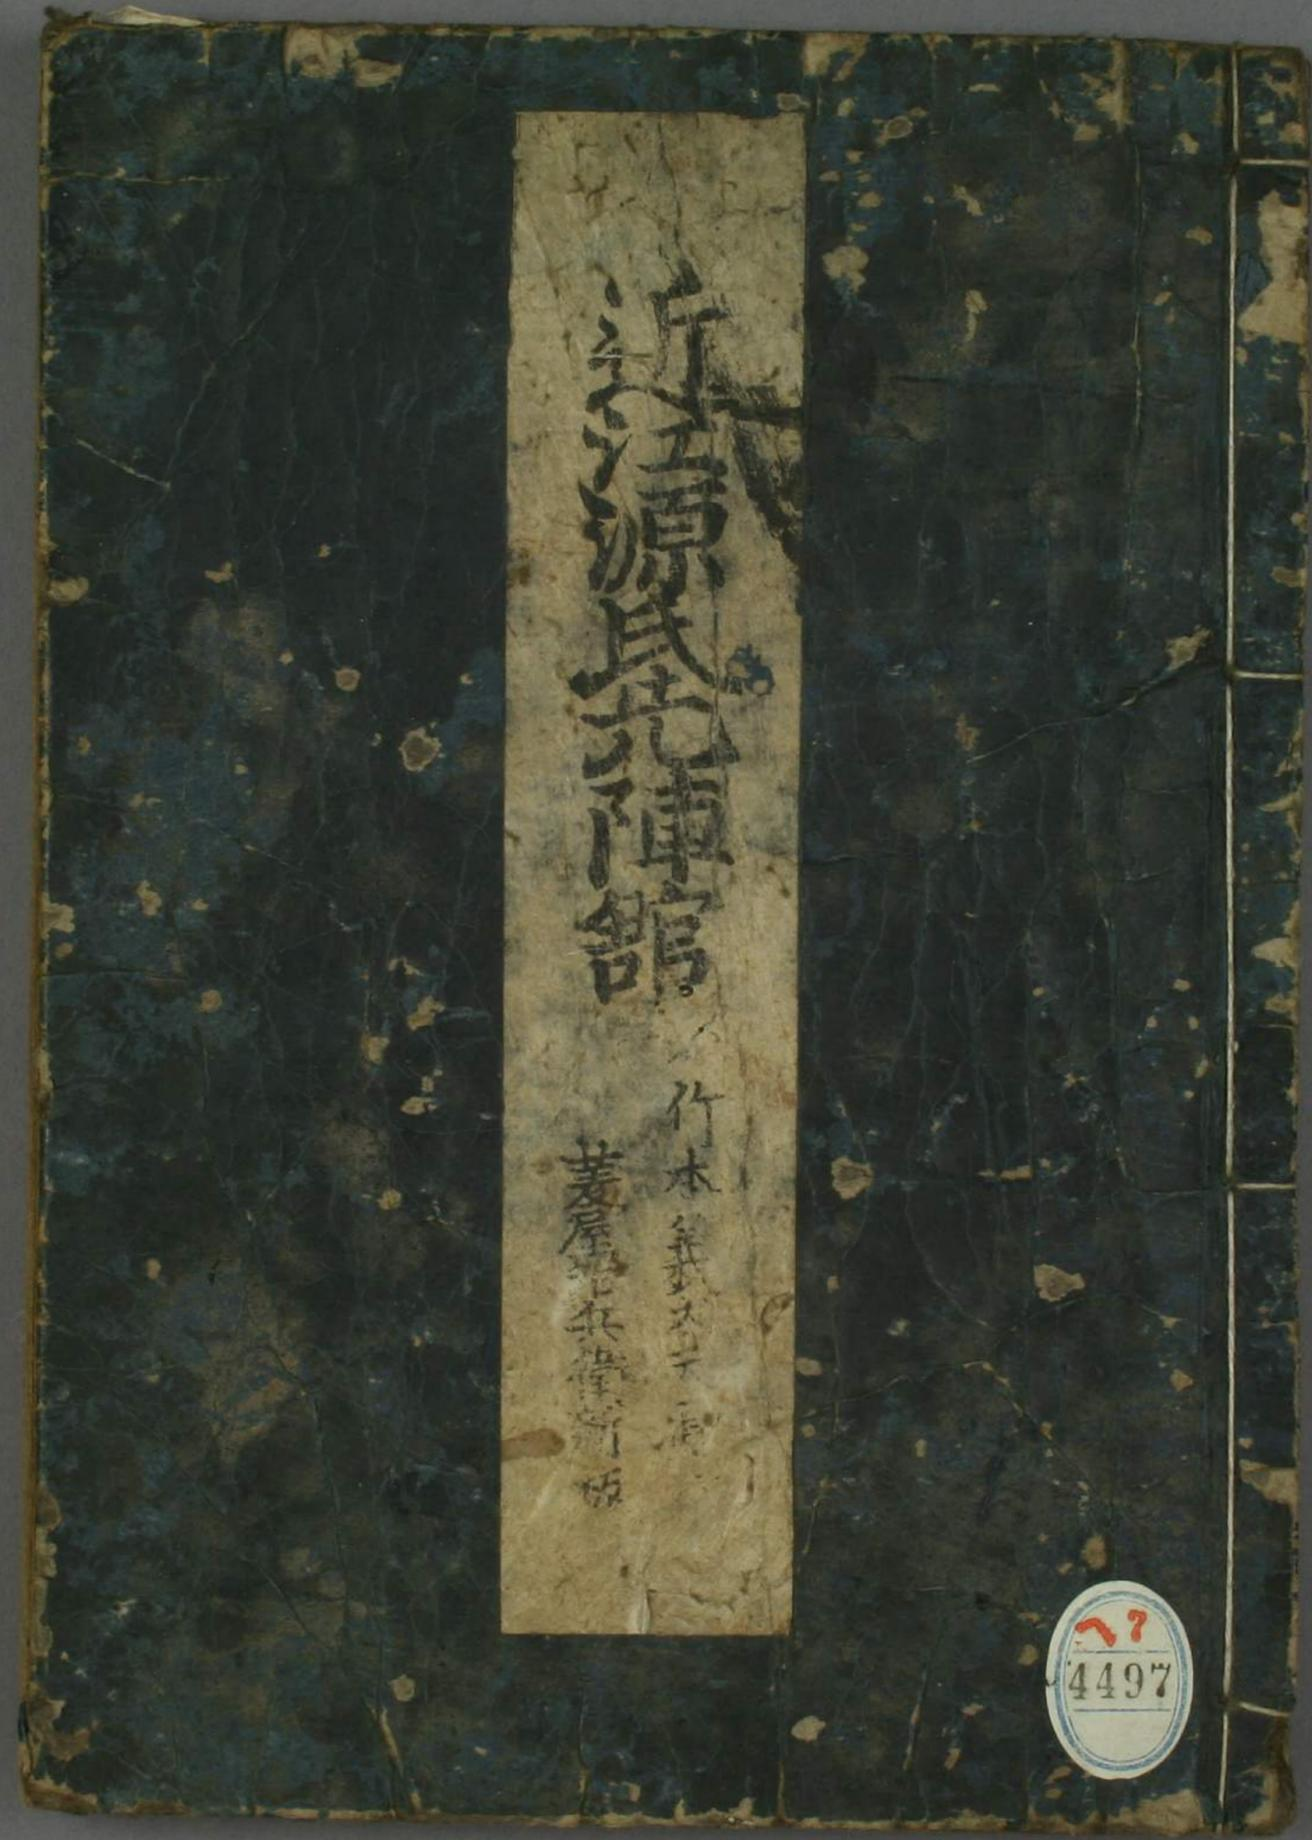 近江源氏先陣舘
竹本義太夫
菱屋兵衛新板
ヘ7
4497